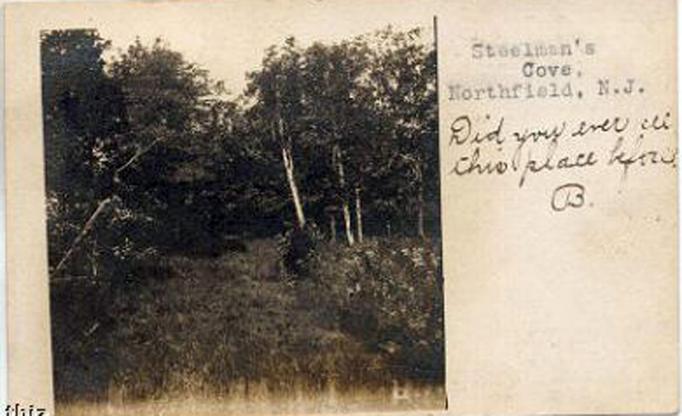 Steelman's
Cove,
Northfield, N.J.
Did you ever see
this place before
B.
thiz